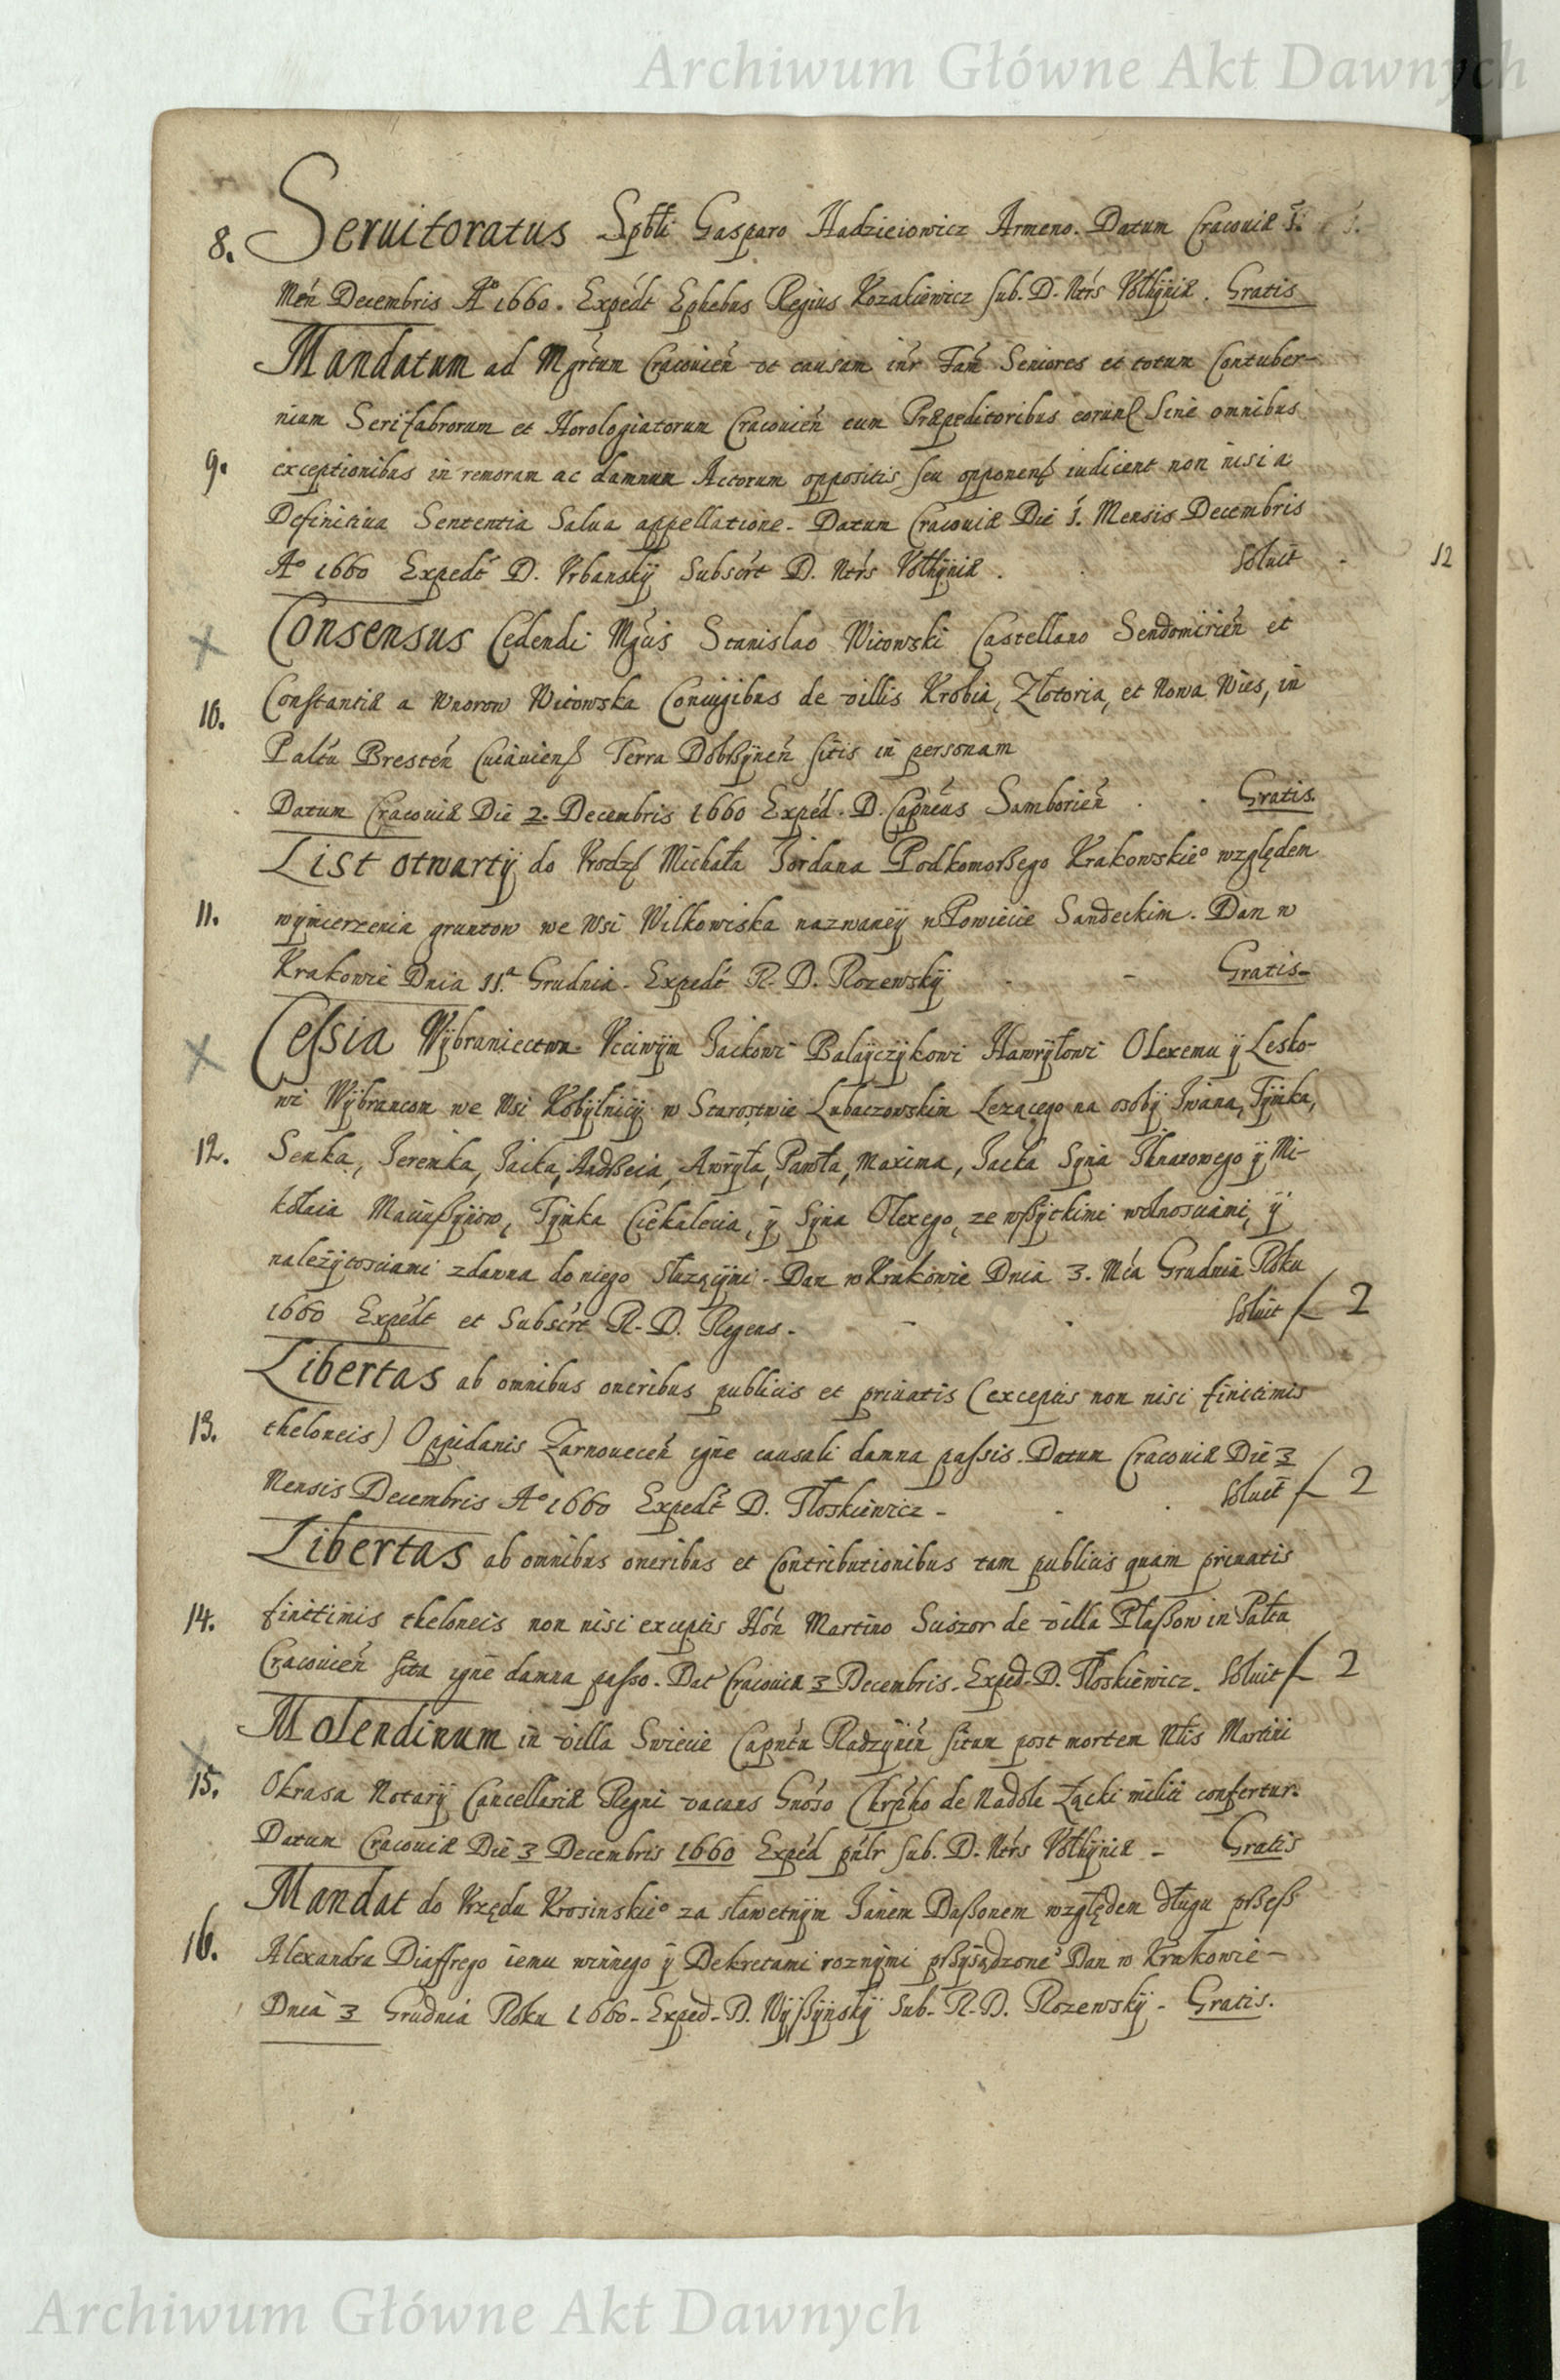 Archiwum Główne Akt Dawnych
8. Seruitoratus Spbli Gasparo Hadzieiowicz Armeno. Datum Cracouiæ 1.
Men̄ Decembris Aº 1660. Expedt Ephebus Regius Kozakiewicz sub. D. Ntrs Vołhÿniæ. Gratis
Mandatum ad Mgrtum Cracouien̄ vt causam intr Fam̄ Seniores et totum Contuber-
nium Serifabrorum et Horologiatorum Cracouien̄ cum Præpeditoribus eorund Sine omnibus
9. exceptionibus in remoram ac damnum Actorum oppositis seu opponen̄ iudicent non nisi a
Definitiua Sententia Salua appellatione. Datum Cracouiæ Die 1. Mensis Decembris
Aº 1660 Expedt D. Vrbanskÿ Subscrt D. Ntrs Vołhÿniæ. Soluit
12
Consensus Cedendi Mgcis Stanislao Witowski Castellano Sendomirien̄ et
10. Constantiæ a Wnorow Witowska Coniugibus de villis Krobia, Złotoria, et Nowa Wies, in
Paltu Bresten̄ Cuiauien̄ Terra Dobrzÿnen̄ sitis in personam
Datum Cracouiæ Die 2. Decembris 1660 Exped. D. Capneus Samborien̄. Gratis.
List otwartÿ do Michała Jordana Podkomorzego Krakowskieº względem
11. wÿmierzenia gruntow we Wsi Wilkowiska nazwaneÿ w Powiecie Sandeckim. Dan w
Krakowie Dnia 11.ª Grudnia. Expedt R. D. Rozewskÿ Gratis
Cessia Wÿbraniectwa Vcciwÿm Jackowi Balaÿczÿkowi Hawrÿłowi Olexemu ÿ Lesko-
wi Wÿbrancom we Wsi Kobÿlnicÿ w Starostwie Lubaczowskim Lezącego na osobÿ Jwana, Tÿmka,
12. Senka, Jeremka, Jacka, Andrzeia, Awrÿła, Pawła, Maxima, Jacka Sÿna Jhnatowego ÿ Mi-
kołaia Maciaszÿkow, Tÿmka Ciekalecia, ÿ Sÿna Olexego, ze wszÿtkimi wolnosciami, ÿ
należÿtosciami zdawna do niego służącÿmi. Dan w Krakowie Dnia 3. Mca Grudnia Roku
1660 Expedt et Subscrt R. D. Regens. Soluit f 2
Libertas ab omnibus oneribus publicis et priuatis (exceptis non nisi finitimis
13. theloneis) Oppidanis Żarnouecen̄ igne causali damna passis. Datum Cracouiæ Die 3
Mensis Decembris Aº 1660 Expedt D. Tłoskiewicz. Soluit f 2
Libertas ab omnibus oneribus et Contributionibus tam publicis quam priuatis
14. finitimis theloneis non nisi exceptis Hon̄ Martino Sciszor de villa Płaszow in Paltu
Cracouien̄ sita igne damna passo. Dat Cracouiæ 3 Decembris. Exped. D. Tłoskiewicz. Soluit f 2
Molendinum in villa Swiecie Capntu Radzÿnen̄ situm post mortem Nlis Martini
15. Okrasa Notarÿ Cancellariæ Regni vacans Gnoso Chrpho de Nadole Łącki militi confertur.
Datum Cracouiæ Die 3 Decembris 1660 Exped pntr sub. D. Ntrs Vołhÿniæ. Gratis
Mandat do Vrzędu Krosinskieº za sławetnÿm Janem Dassonem względem długu przesz
16. Alexandra Diaffrego iemu winnego ÿ Dekretami roznÿmi przÿsądzoneº Dan w Krakowie
Dnia 3 Grudnia Roku 1660. Exped. D. Wÿszÿnskÿ Sub. R. D. Rozewskÿ. Gratis.
Archiwum Główne Akt Dawnych